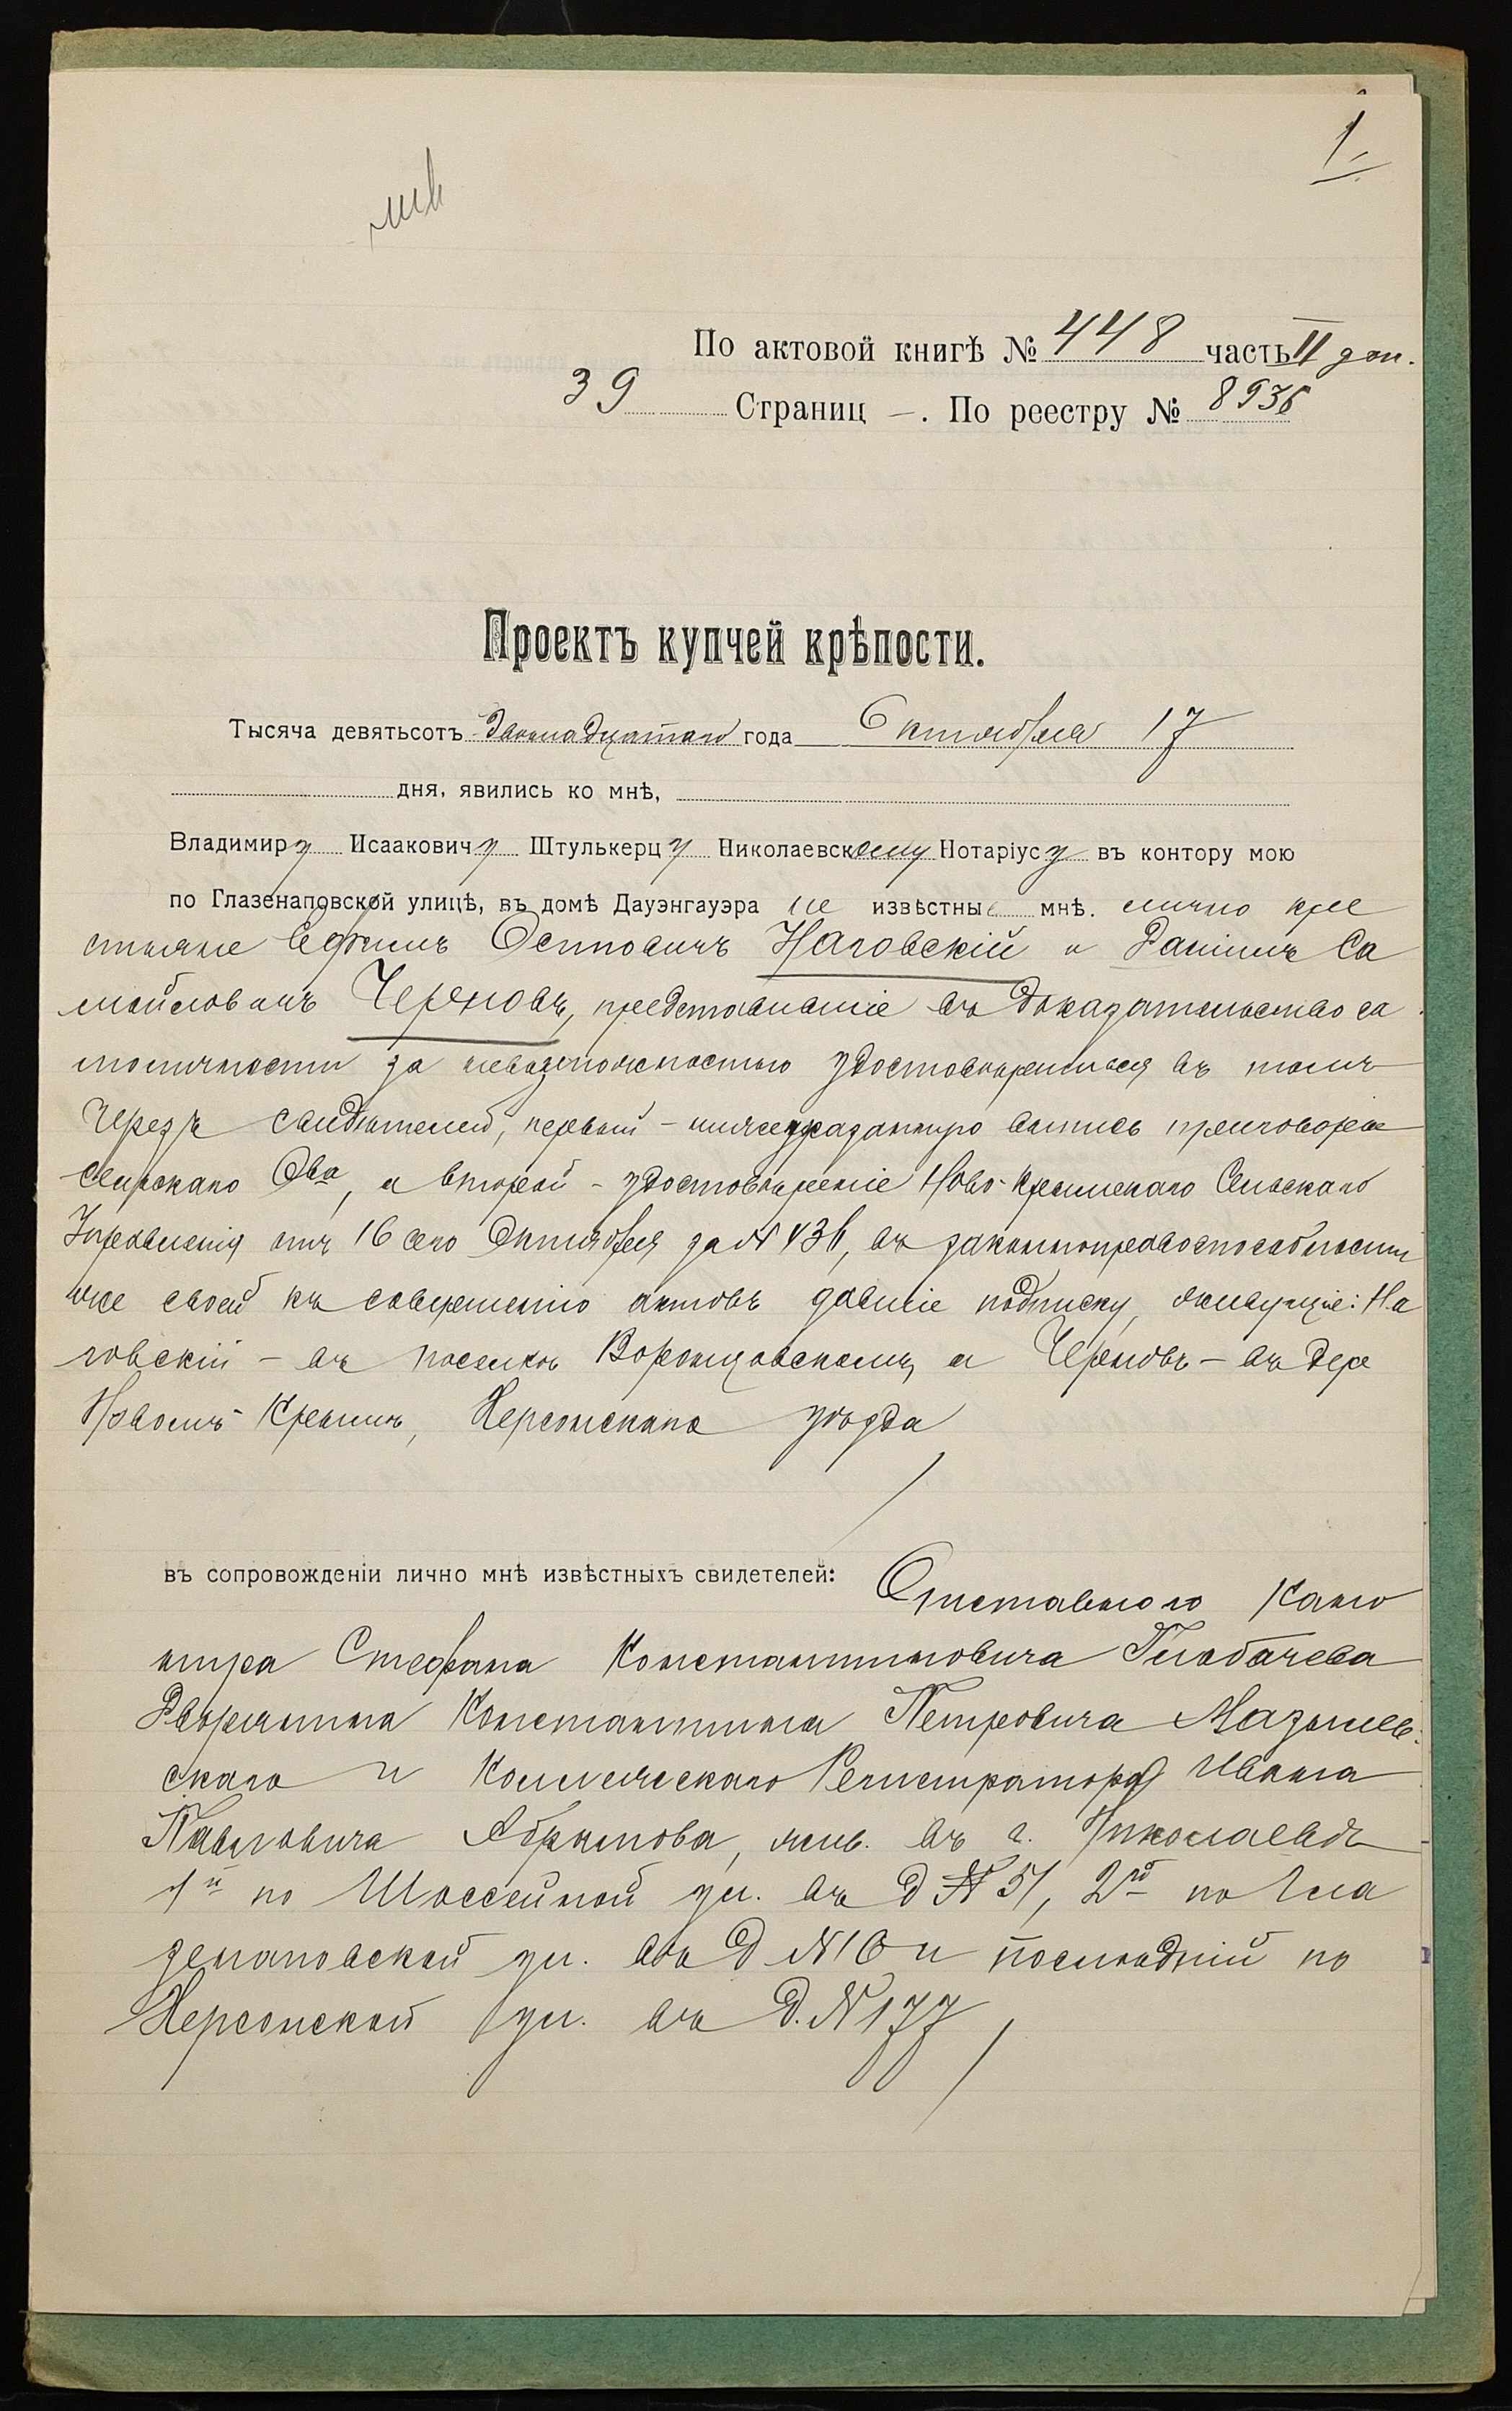 1
По актовой книгѣ № 448 часть II доп.
39 Страниц —. По реестру № 8936
Проектъ купчей крѣпости.
Тысяча девятьсотъ двѣнадцатаго года Октября 17
дня, явились ко мнѣ,
Владимиру Исааковичу Штулькерцу Николаевскому Нотаріусу въ контору мою
по Глазенаповской улицѣ, въ домѣ Дауэнгауэра не извѣстные мнѣ. лично кре
стьяне Ефимъ Осиповичъ Наговскій и Самойловичъ
Черновъ, представившіе въ доказательство са
моличности за невозможностью удостовѣриться въ томъ
черезъ свидѣтелей, первый – нижеуказанную выпись приговора
Сельскаго Ова, а второй – удостовѣреніе Ново-Кремскаго Сельскаго
Управленія отъ 16 сего Октября за № 436, въ законноправоспособности
же своей къ совершенію актовъ давшіе подписку, живущіе: На
говскій – въ поселкѣ Воронцовскомъ, а Черновъ – въ дер
Новомъ-Кременѣ, Херсонскаго уѣзда
въ сопровожденіи лично мнѣ извѣстныхъ свидетелей: Отставного Кано
нира Стефана Константиновича Глобачева
Дворянина Константина Петровича Мазылев-
скаго и Коллежскаго Регистратора Ивана
Павловича Абрамова, жив. въ г. Николаевѣ
1й по Шоссейной ул. въ д № 51, 2ой по Гла
зенаповской ул. въ д № 10 и послѣдній по
Херсонской ул. въ д. № 177